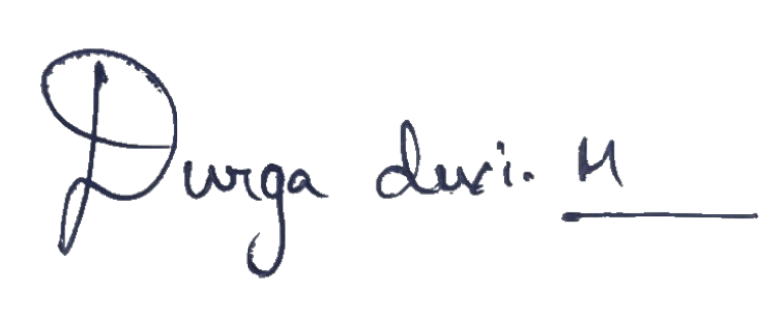 Durga devi. M